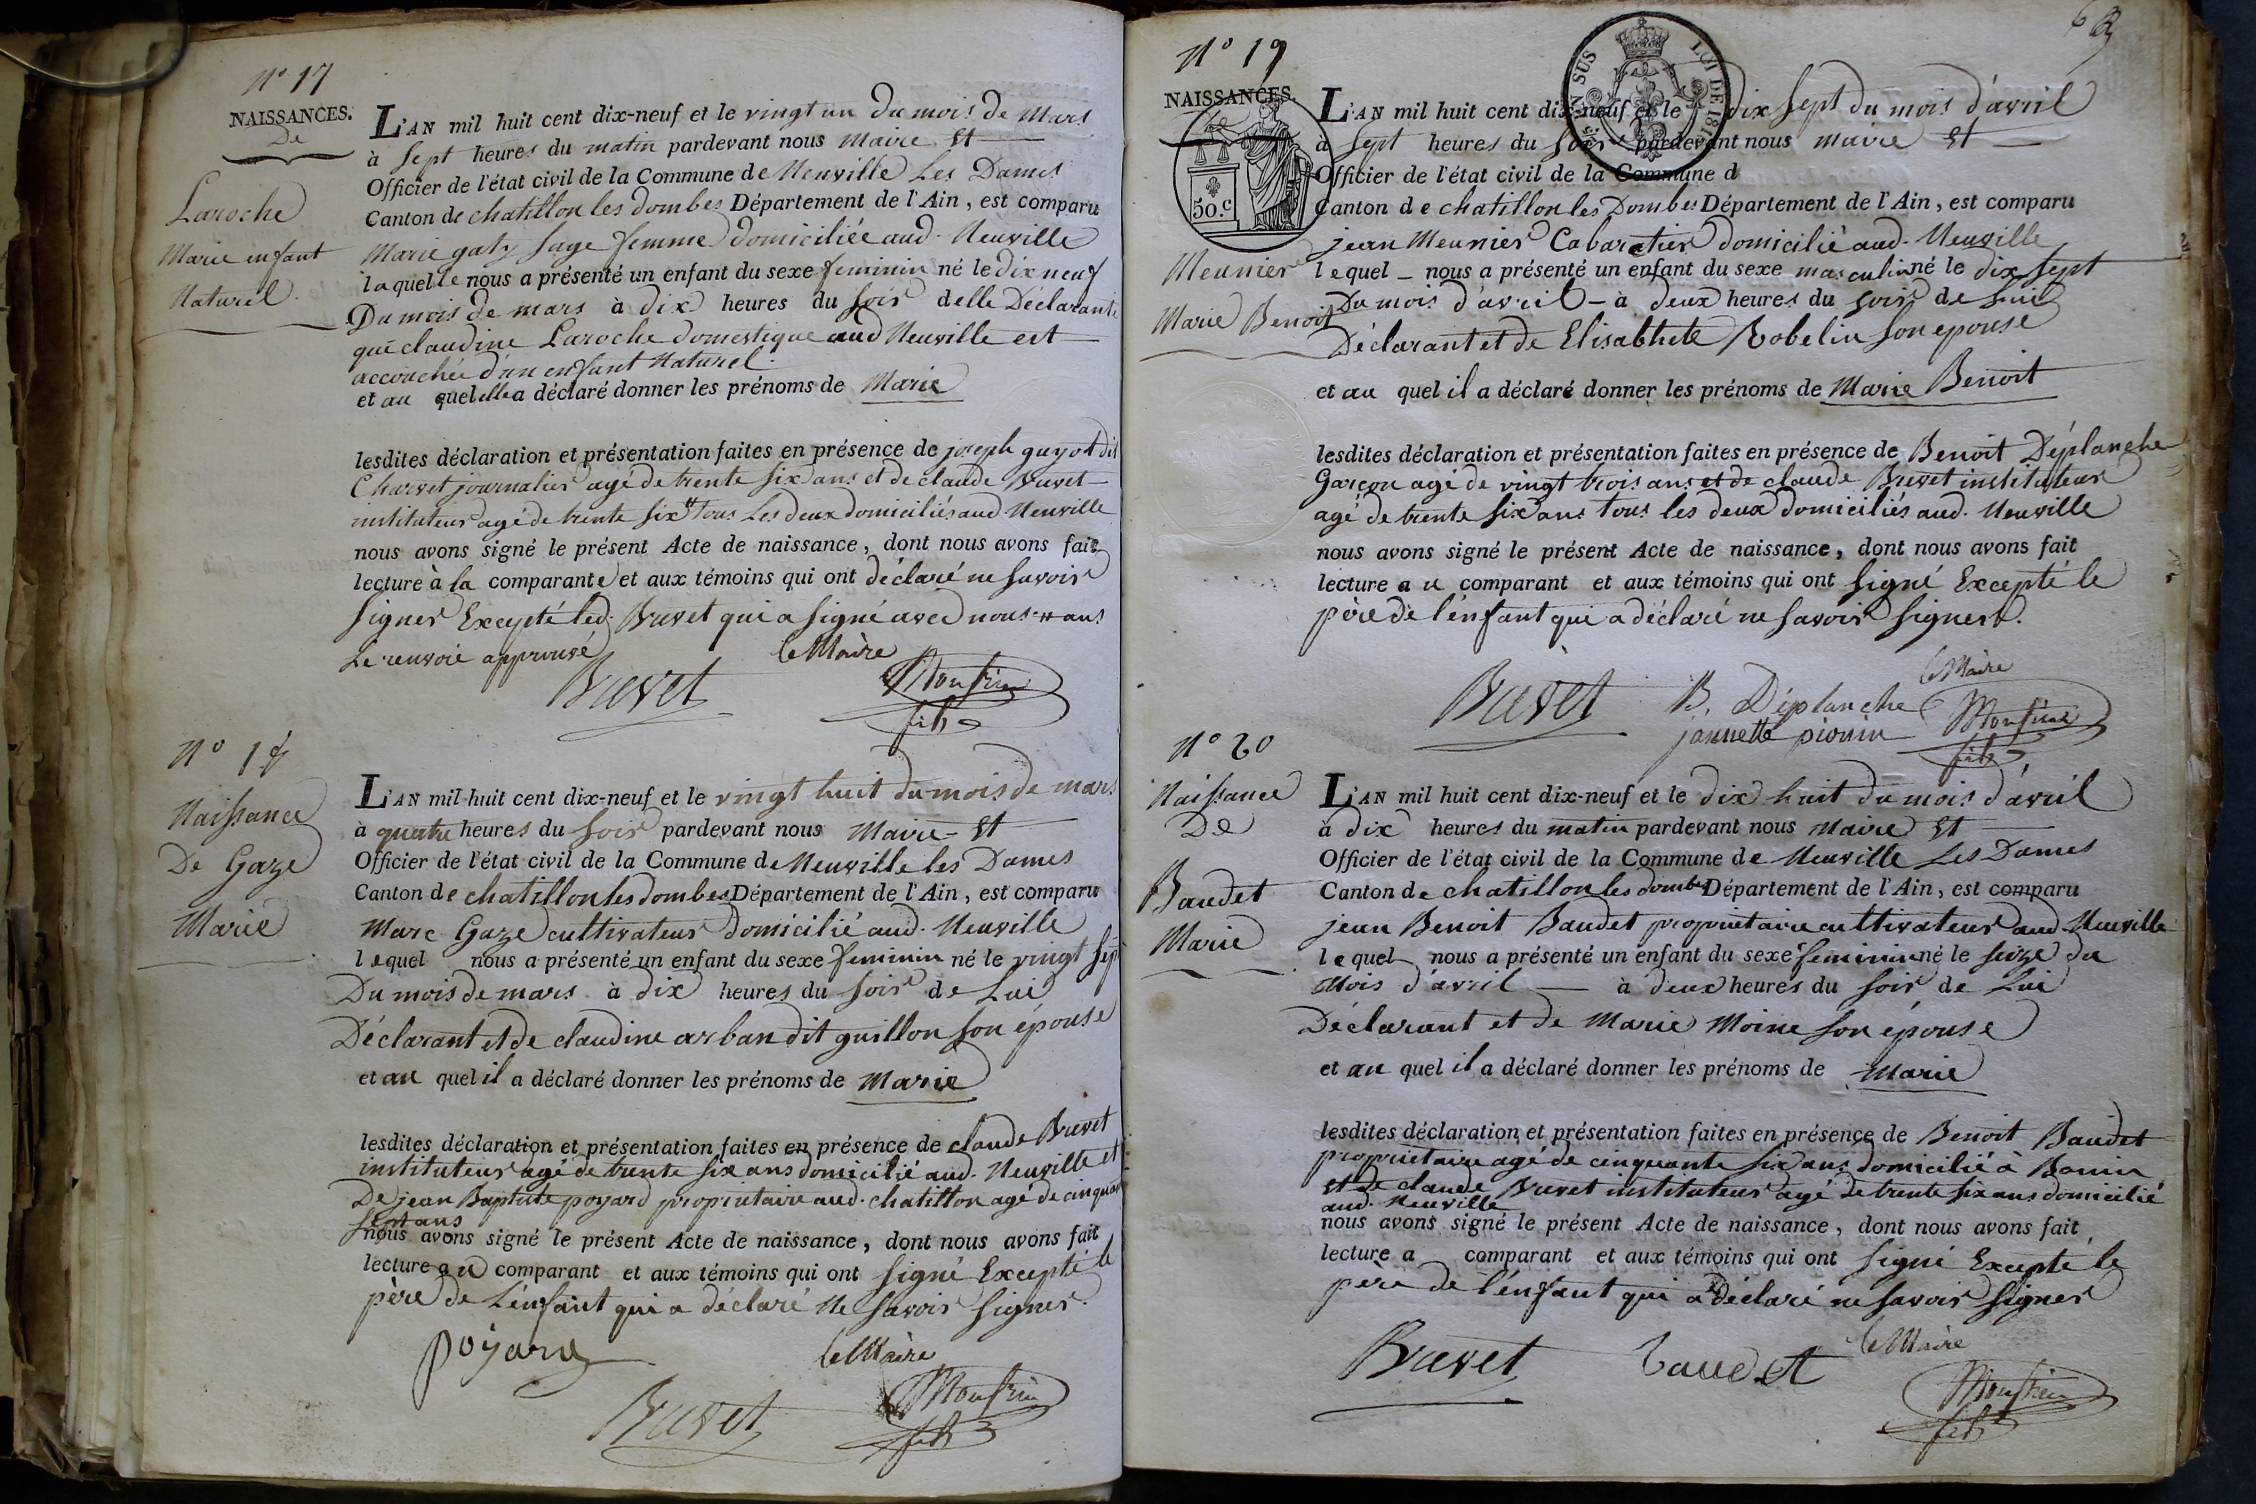 N° 17
NAISSANCES.
De
Laroche
Marie enfant
Naturel.
L'AN mil huit cent dix-neuf et le vingt un du mois de Mars
à sept heures du matin pardevant nous Maire Et
Officier de l'état civil de la Commune de Neuville Les Dames
Canton de chatillon les dombes Département de l'Ain, est comparu
Marie gatz sage femme domiciliée aud. Neuville
laquelle nous a présenté un enfant du sexe feminin né le dix neuf
Du mois de mars à dix heures du soir delle Déclarante
que claudine Laroche domestique aud Neuville est
accouchée d'un enfant Naturel.
et au quel elle a déclaré donner les prénoms de Marie
lesdites déclaration et présentation faites en présence de joseph guyot dit
Charvet journalier agé de trente six ans et de claude Buvet
instituteur agé de trente six # tous Les deux domiciliés aud Neuville
nous avons signé le présent Acte de naissance, dont nous avons fait
lecture à la comparante et aux témoins qui ont déclaré ne savoir
signer Excepté led. Buvet qui a signé avec nous # ans
Le renvoie approuvé
le Maire
Buvet
fils
N° 18
Naissance
De Gaze
Marie
L'AN mil huit cent dix-neuf et le vingt huit du mois de mars
à quatre heures du soir pardevant nous Maire - Et
Officier de l'état civil de la Commune de Neuville les Dames
Canton de chatillon les dombes Département de l'Ain, est comparu
Marc Gaze cultivateur domicilié aud. Neuville
lequel nous a présenté un enfant du sexe feminin né le vingt sept
Du mois de mars à dix heures du soir de Lui
Déclarant et de claudine arban dit guillon son épouse
et au quel il a déclaré donner les prénoms de Marie
lesdites déclaration et présentation faites en présence de claude Buvet
instituteur agé de trente six ans domicilié aud. Neuville et
De jean Baptiste poyard proprietaire aud. chatillon agé de cinquante
sept ans
nous avons signé le présent Acte de naissance, dont nous avons fait
lecture au comparant et aux témoins qui ont signé Excepté le
père de L'énfant qui a déclaré Ne savoir signer.
poyard
le Maire
Buvet
fils
N° 19
NAISSANCES.
50.c
EN SUS
LOI DE 181
Meunier
Marie Benoit
L'AN mil huit cent dix-neuf et le dix sept du mois d'avril
à sept heures du soir pardevant nous maire Et
Officier de l'état civil de la Commune d
Canton de chatillon les Dombes Département de l'Ain, est comparu
jean Meunier Cabaretier domicilié aud. Neuville
lequel - nous a présenté un enfant du sexe masculin né le dix sept
Du mois d'avril - à deux heures du soir de Lui
Déclarant et de Elisabhete Robelin son epouse
et au quel il a déclaré donner les prénoms de Marie Benoit
lesdites déclaration et présentation faites en présence de Benoit Déplanche
Garçon agé de vingt trois ans et de claude Buvet instituteur
agé de trente six ans tous les deux domiciliés aud. Neuville
nous avons signé le présent Acte de naissance, dont nous avons fait
lecture au comparant et aux témoins qui ont signé Excepté le
père de l'énfant qui a déclaré ne savoir signer.
Buvet
B. Déplanche
le Maire
jannette pionin
fils
N° 20
Naissance
De
Baudet
Marie
L'AN mil huit cent dix-neuf et le dix huit du mois d'avril
à dix heures du matin pardevant nous Maire Et
Officier de l'état civil de la Commune de Neuville Les Dames
Canton de chatillon les dombes Département de l'Ain, est comparu
jean Benoit Baudet proprietaire cultivateur aud. Neuville
lequel nous a présenté un enfant du sexe feminin né le seize du
Mois d'avril - à deux heures du soir de Lui
Déclarant et de Marie Moine son épouse
et au quel il a déclaré donner les prénoms de Marie
lesdites déclaration et présentation faites en présence de Benoit Baudet
proprietaire agé de cinquante six ans domicilié à
Et de claude Buvet instituteur agé de trente six ans domicilié
aud. Neuville
nous avons signé le présent Acte de naissance, dont nous avons fait
lecture a comparant et aux témoins qui ont signé Excepté le
père de l'énfant qui a déclaré ne savoir signer
Buvet
baudet
le Maire
fils